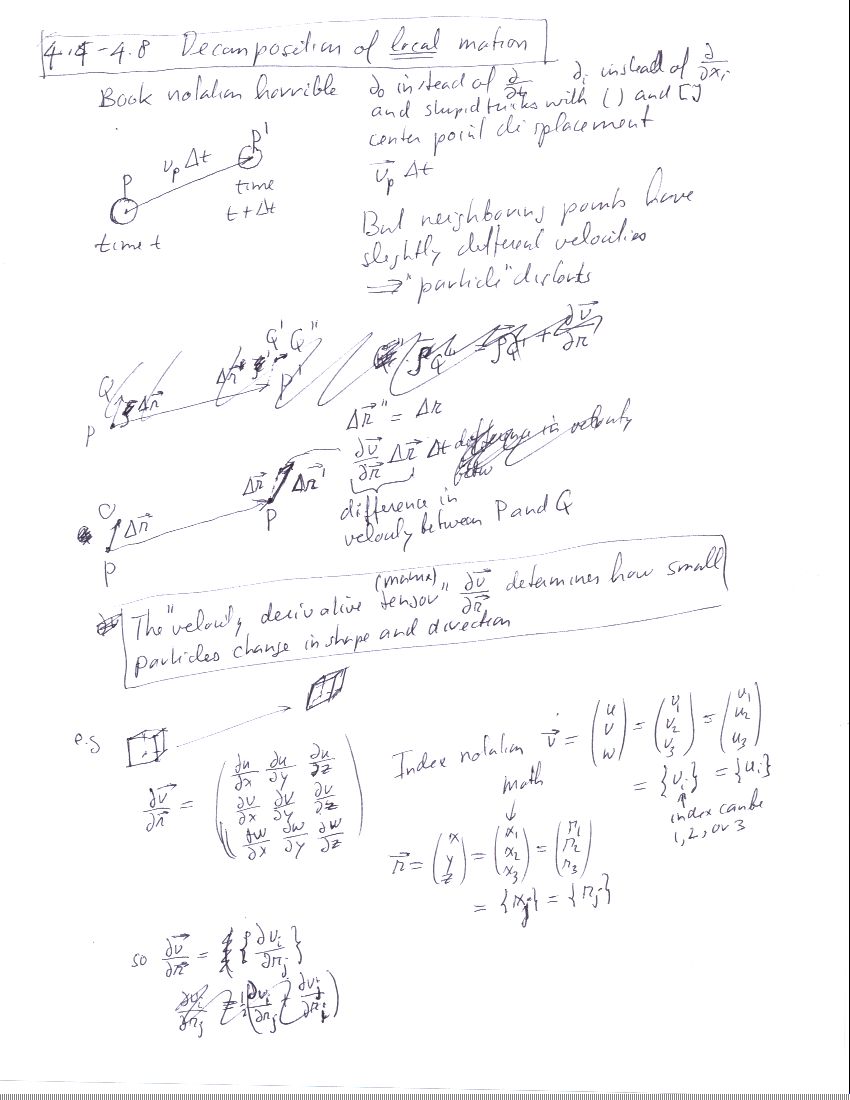 4.4-4.8 Decomposition of local motion
Book notation horrible
∂₀ instead of ∂/∂t ∂ᵢ instead of ∂/∂xᵢ
and stupid tricks with () and []
center point displacement
v⃗ₚ Δt
P
vₚ Δt
P'
time t
time
t + Δt
But neighboring points have
slightly different velocities
⟹ "particle" distorts
Q
Δr⃗
P
Q' Q''
Δr⃗
P'
+ ∂v⃗/∂r⃗
Δr⃗'' = Δr
∂v⃗/∂r⃗ Δr⃗ Δt difference in velocity
difference in
velocity between P and Q
Δr⃗
P
Δr⃗
Δr⃗'
P
The "velocity derivative (matrix) tensor" ∂v⃗/∂r⃗ determines how small
particles change in shape and direction
e.g
∂v⃗/∂r⃗ = ( ∂u/∂x ∂u/∂y ∂u/∂z
∂v/∂x ∂v/∂y ∂v/∂z
∂w/∂x ∂w/∂y ∂w/∂z )
Index notation v⃗ = (u v w) = (v₁ v₂ v₃) = (u₁ u₂ u₃)
= {vᵢ} = {uᵢ}
index can be
1, 2, or 3
math
r⃗ = (x y z) = (x₁ x₂ x₃) = (r₁ r₂ r₃)
= {xⱼ} = {rⱼ}
so ∂v⃗/∂r⃗ = {∂vᵢ/∂rⱼ}
∂vᵢ/∂rⱼ = ½(∂vᵢ/∂rⱼ + ∂vⱼ/∂rᵢ)